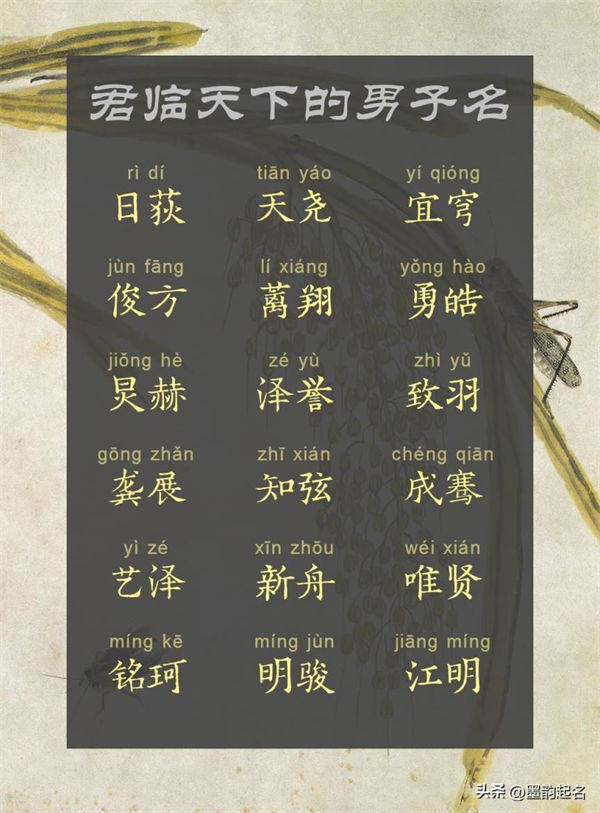 君临天下的男子名
rì dí tiān yáo yí qióng
日荻 天尧 宜穹
jùn fāng lí xiáng yǒng hào
俊方 蓠翔 勇皓
jiǒng hè zé yù zhì yǔ
炅赫 泽誉 致羽
gōng zhǎn zhī xián chéng qiān
龚展 知弦 成骞
yì zé xīn zhōu wéi xián
艺泽 新舟 唯贤
míng kē míng jùn jiāng míng
铭珂 明骏 江明
头条 @墨韵起名